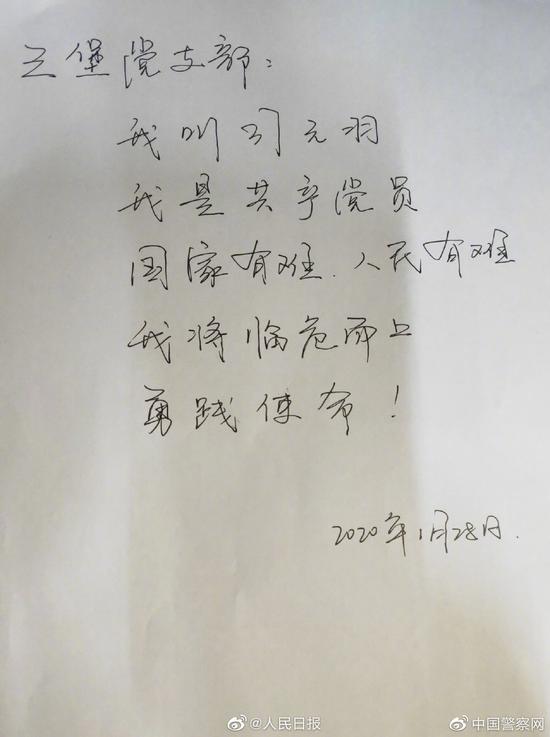 三堡党支部：
我叫司元羽
我是共产党员
国家有难、人民有难
我将临危而上
勇践使命！
2020年1月28日.
@人民日报 中国警察网